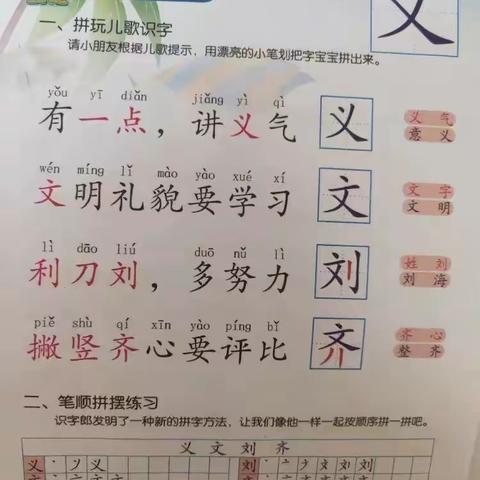 义
一、拼玩儿歌识字
请小朋友根据儿歌提示，用漂亮的小笔划把字宝宝拼出来。
yǒu yī diǎn jiǎng yì qì
有一点，讲义气 义 义气
意义
wén míng lǐ mào yào xué xí
文明礼貌要学习 文 文字
文明
lì dāo liú duō nǔ lì
利刀刘，多努力 刘 姓刘
刘海
piě shù qí xīn yào píng bǐ
撇竖齐心要评比 齐 齐心
整齐
二、笔顺拼摆练习
识字郎发明了一种新的拼字方法，让我们像他一样一起按顺序拼一拼吧。
义文刘齐
义 丶 丿 义 刘 丶 亠 ナ 文 刘 刘